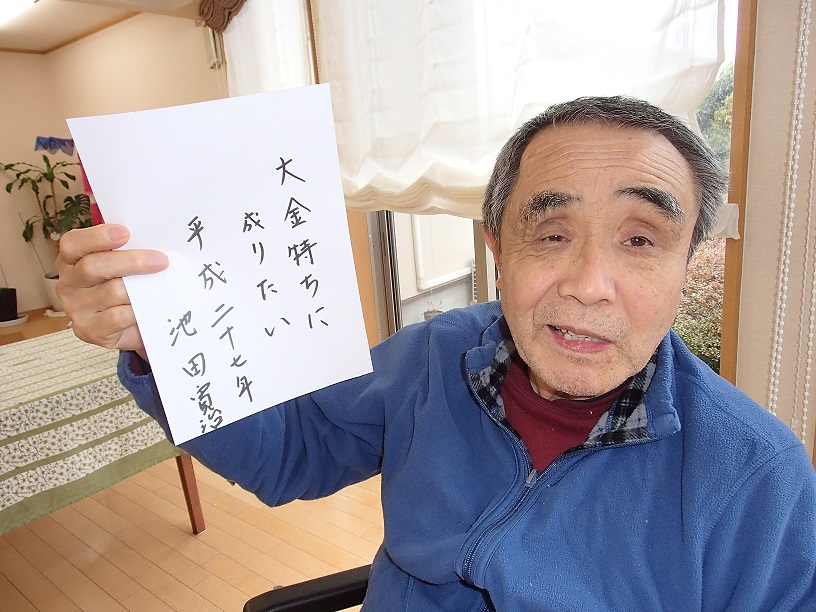 大金持ちに
成りたい
平成二十七年
池田